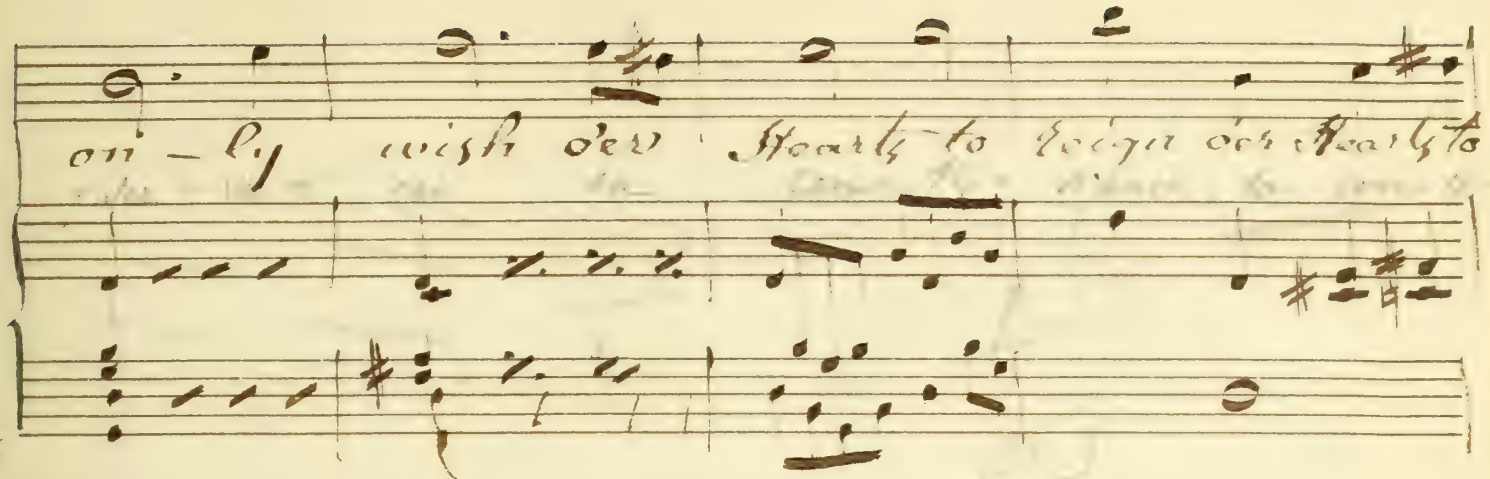 on - ly wish o'er Hearts to Reign o'er Hearts to